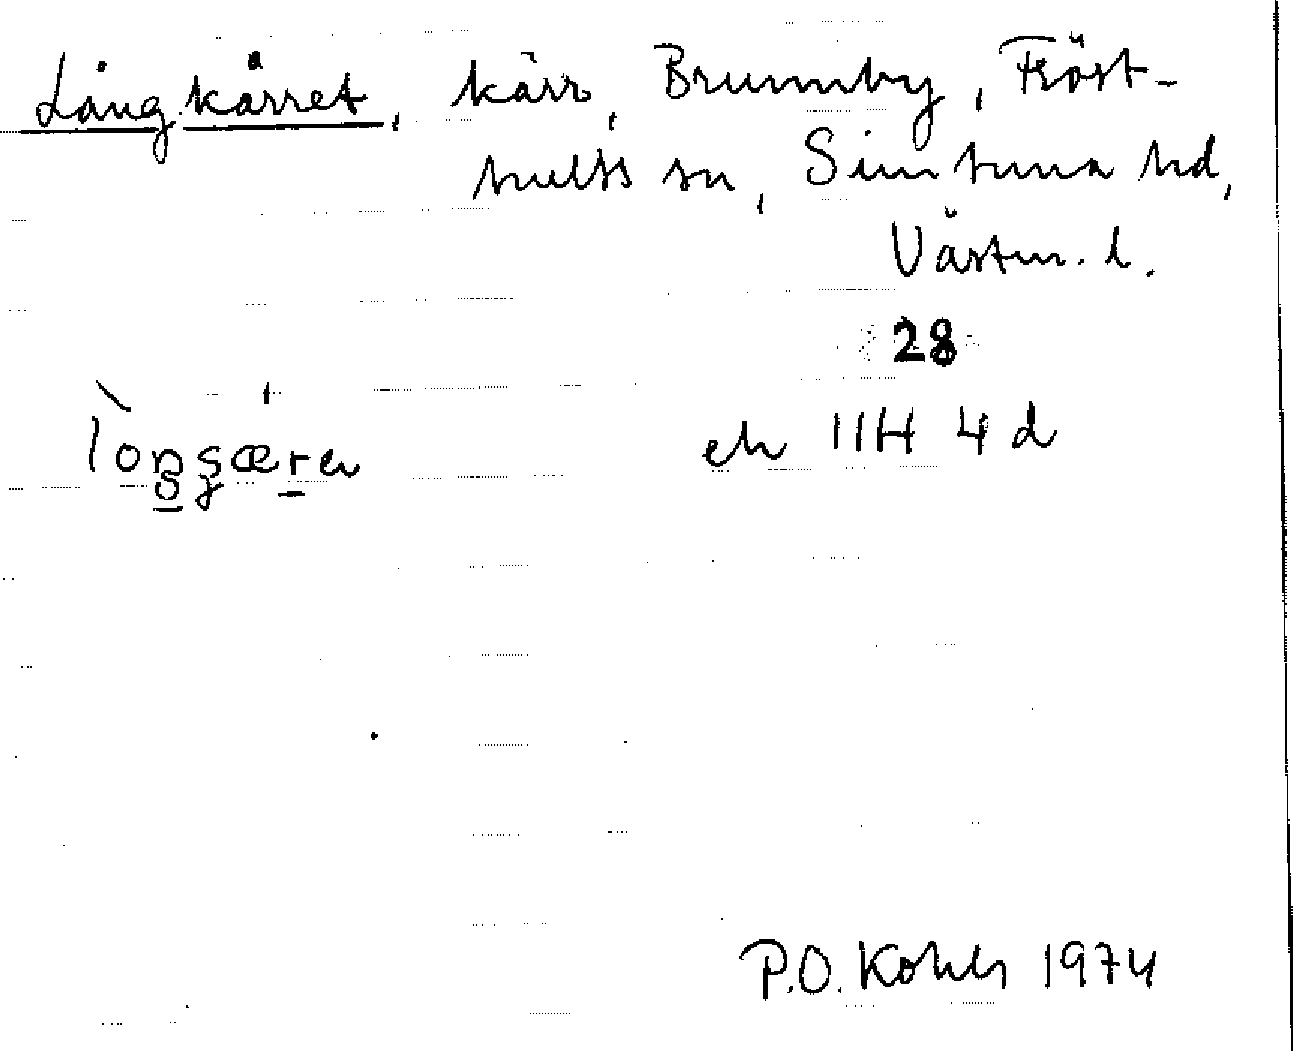 Långkärret, kärr, Brumby, Fröst-
hults sn, Simtuna hd,
Västm. l.
28
ek 11H 4d
P.O. Kohls 1974